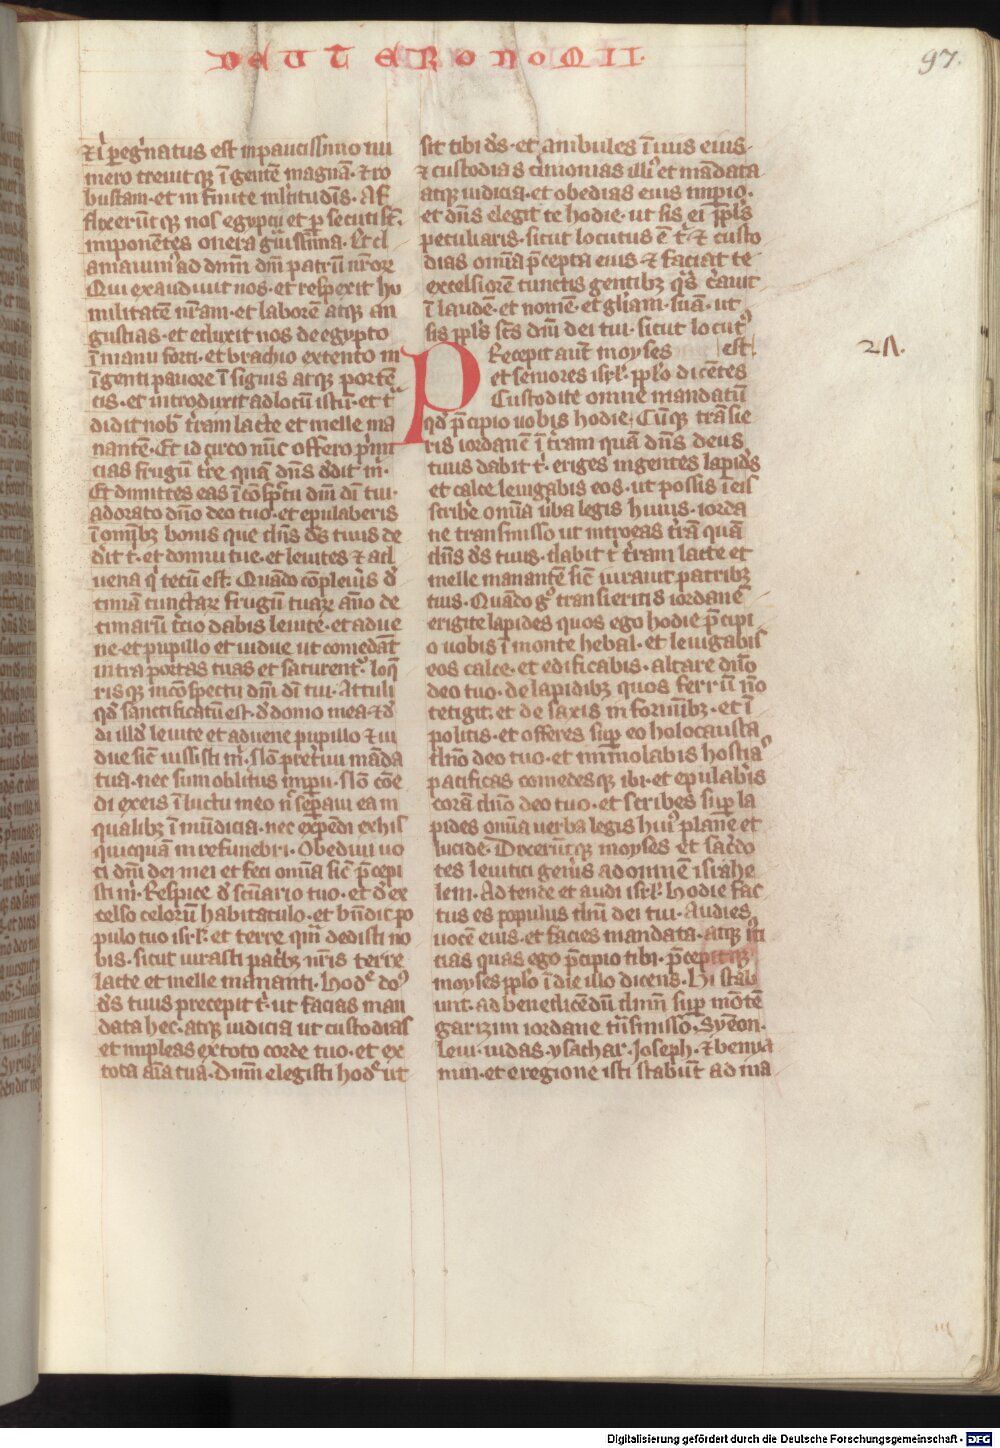 DEUTERONOMII
97.
⁊ i p̄egͥnatus est in paucissimo nu
mero creuit qꝫ ī gentē magnā· ⁊ ro
bustam· et in finite ml̄titudīs· Af
flixerūt qꝫ nos egyptij et ꝑsecuti st̄·
imponētes onera gͣuissīma· Et cl
amauimͥ ad dnm̄ dm̄ patrū nr̄orꝫ
Qui exaudiuit nos· et respexit hu
militatē nr̄am· et laborē atqꝫ an
gustias· et eduxit nos de egypto
ī manu forti· et brachio extento in
ī genti pauore ī signis atqꝫ porten
tis· et introduxit ad locū istū· et tͥ
didit nob̄ tr̄ram lacte et melle ma
nantē· Et idcirco nūc offero pͥmi
cias frugū tr̄re quā dn̄s dͥdit mͥ·
Et dimittes eas ī cōspc̄tu dn̄i dī tui·
adorato dn̄o deo tuo· et epulaberis
ī omībꝫ bonis que dn̄s dꝰs tuus de
dͥit tͥ· et domui tue· et leuites ⁊ ad
uena qͥ tecū est· Quādo cōpleuͥis dͤ
timā cunctarꝫ frugū tuarꝫ āno de
timarū tͥcio dabis leuite· et adue
ne· et pupillo et uidue ut comedāt
intra portas tuas et saturentͬ· loq̄
risqꝫ in cōspectu dn̄i dī tui· Attuli
qd̄ sanctificatū est· dͤ domo mea· ⁊ dͤ
di illdͩ leuite et aduene pupillo ⁊ ui
due sic̄ iussisti mͥ· Nō pretͥiui māda
tua· nec sum oblitus imꝑij· Nō cōe
di ex eis ī luctu meo nͨ seꝑaui ea in
qualibꝫ ī mūdicia· nec exꝑēdi ex hijs
quicquā in re funebri· Obediui uo
ci dn̄i dei mei et feci omīa sic̄ p̄cepi
sti mͥ· Respice dͤ sc̄uario tuo· et dͤ ex
celso celorū habitatulo· et bn̄dic po
pulo tuo isrl̄· et terre qm̄ dedisti no
bis· sicut iurasti patͥbꝫ nr̄is terre
lacte et melle mananti· Hodͤ doꝰ
dꝰs tuus precepit tͥ· ut facias man
data hec· atqꝫ iudicia ut custodias
et impleas ex toto corde tuo· et ex
tota aīa tua· Dnm̄ elegisti hodͤ ut
sit tibi dꝰs· et ambules ī uijs eius·
⁊ custodias cͥimonias illiꝰ et mādata
atqꝫ iudicia· et obedias eius imꝑio·
et dn̄s elegit te hodie· ut sis ei ppl̄s
peculiaris· sicut locutus ē tͥ· ⁊ custo
dias omīa p̄cepta eius ⁊ faciat te
excelsiorē cunctis gentibꝫ qͣs cͥauit
ī laudē· et nomē· et gl̄iam· suā· ut
sis ppl̄s sc̄s dn̄i dei tui· sicut locutꝰ
est·
PRecepit aut̄ moyses
et seniores isrl̄· pplo dicētes
Custodite omne mandatū
qd̄ p̄cipio uobis hodie· Cūqꝫ trāsie
ris iordanē ī tr̄ram quā dn̄s deus
tuus dabit tͥ· eriges ingentes lapidͤs
et calce leuigabis eos· ut possis ī eis
scribͤe omīa uͥba legis huius· iorda
ne transmisso ut introeas tr̄rā quā
dn̄s dꝰs tuus· dabit tͥ tr̄ram lacte et
melle manantē sic̄ iurauit patribꝫ
tuis· Quādo gͦ transieritis iordanē
erigite lapides quos ego hodie p̄cipi
o uobis ī monte hebal· et leuigabis
eos calce· et edificabis· altare dn̄o
deo tuo· de lapidibꝫ quos ferrū nō
tetigit· et de saxis in formībꝫ· et ī
politis· et offeres suꝑ eo holocausta
dn̄o deo tuo· et immolabis hostias
pacificas comedesqꝫ ibi· et epulabͥis
corā dn̄o deo tuo· et scribes suꝑ la
pides omīa uerba legis huiꝰ planͤe et
lucide· Dixerūtqꝫ moyses et sacͤdo
tes leuitici genͥis ad omnē israhe
lem· Adtende et audi isrl̄· hodie fac
tus es populus dn̄i dei tui· Audies
uocē eius· et facies mandata· atqꝫ iͣti
cias quas ego p̄cipio tibi· p̄cepitqꝫ
moyses pplo ī die illo dicens· Hi stab
unt· ad benedicēdū dnm̄ suꝑ mōtē
garizim iordane tͣnsmisso· Symeon·
leui· iudas· ysachar· Joseph· ⁊ benya
min· et e regione isti stabūt ad ma
27.
Digitalisierung gefördert durch die Deutsche Forschungsgemeinschaft - DFG